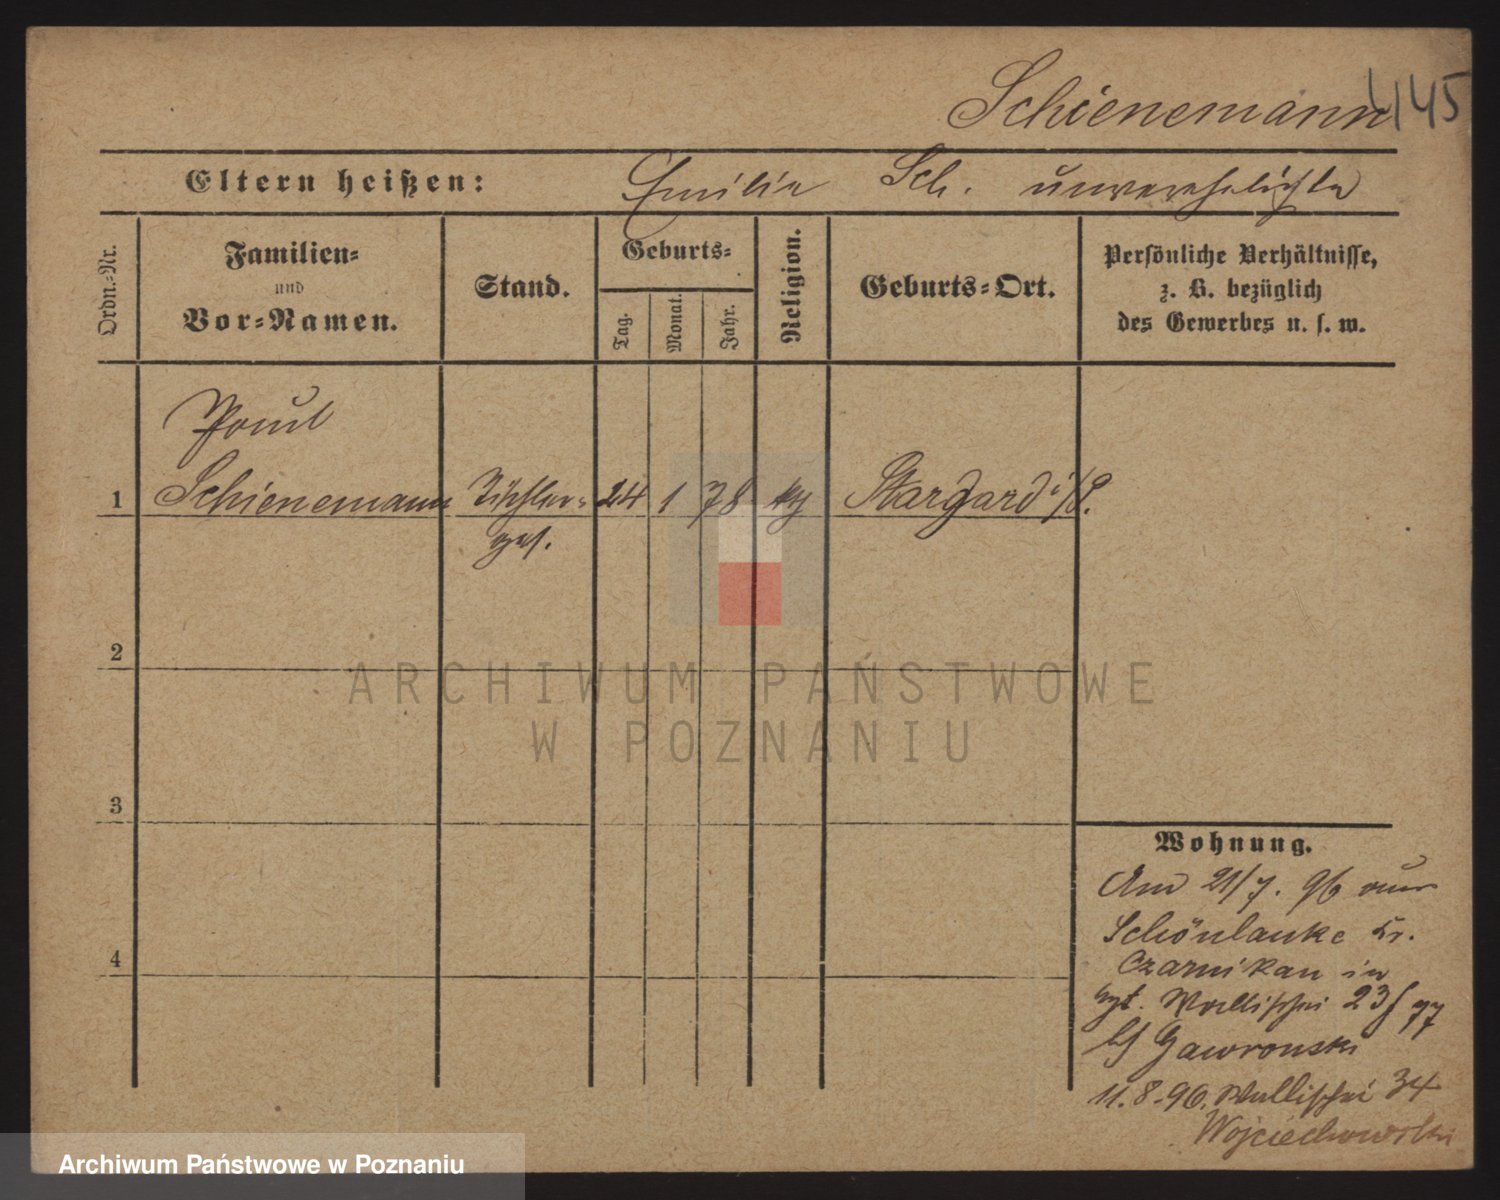 Schienemann
1145
Eltern heißen: Emilie Sch. unverehelichte
Ordn.-Nr.
Familien-
und
Vor-Namen.
Stand.
Geburts-
Tag.
Monat.
Jahr.
Religion.
Geburts-Ort.
Persönliche Verhältnisse,
z. B. bezüglich
des Gewerbes u. s. w.
Paul
1 Schienemann Tischler- 24 1 78 Stargard i/P.
ges.
2
3
4
Wohnung.
Am 21/7. 96 aus
Schönlanke Kr.
Czarnikau in
Wallischei 23
Gawronski
11.8.96. Wallischei 34
Wojciechowski
ARCHIWUM PAŃSTWOWE
W POZNANIU
Archiwum Państwowe w Poznaniu